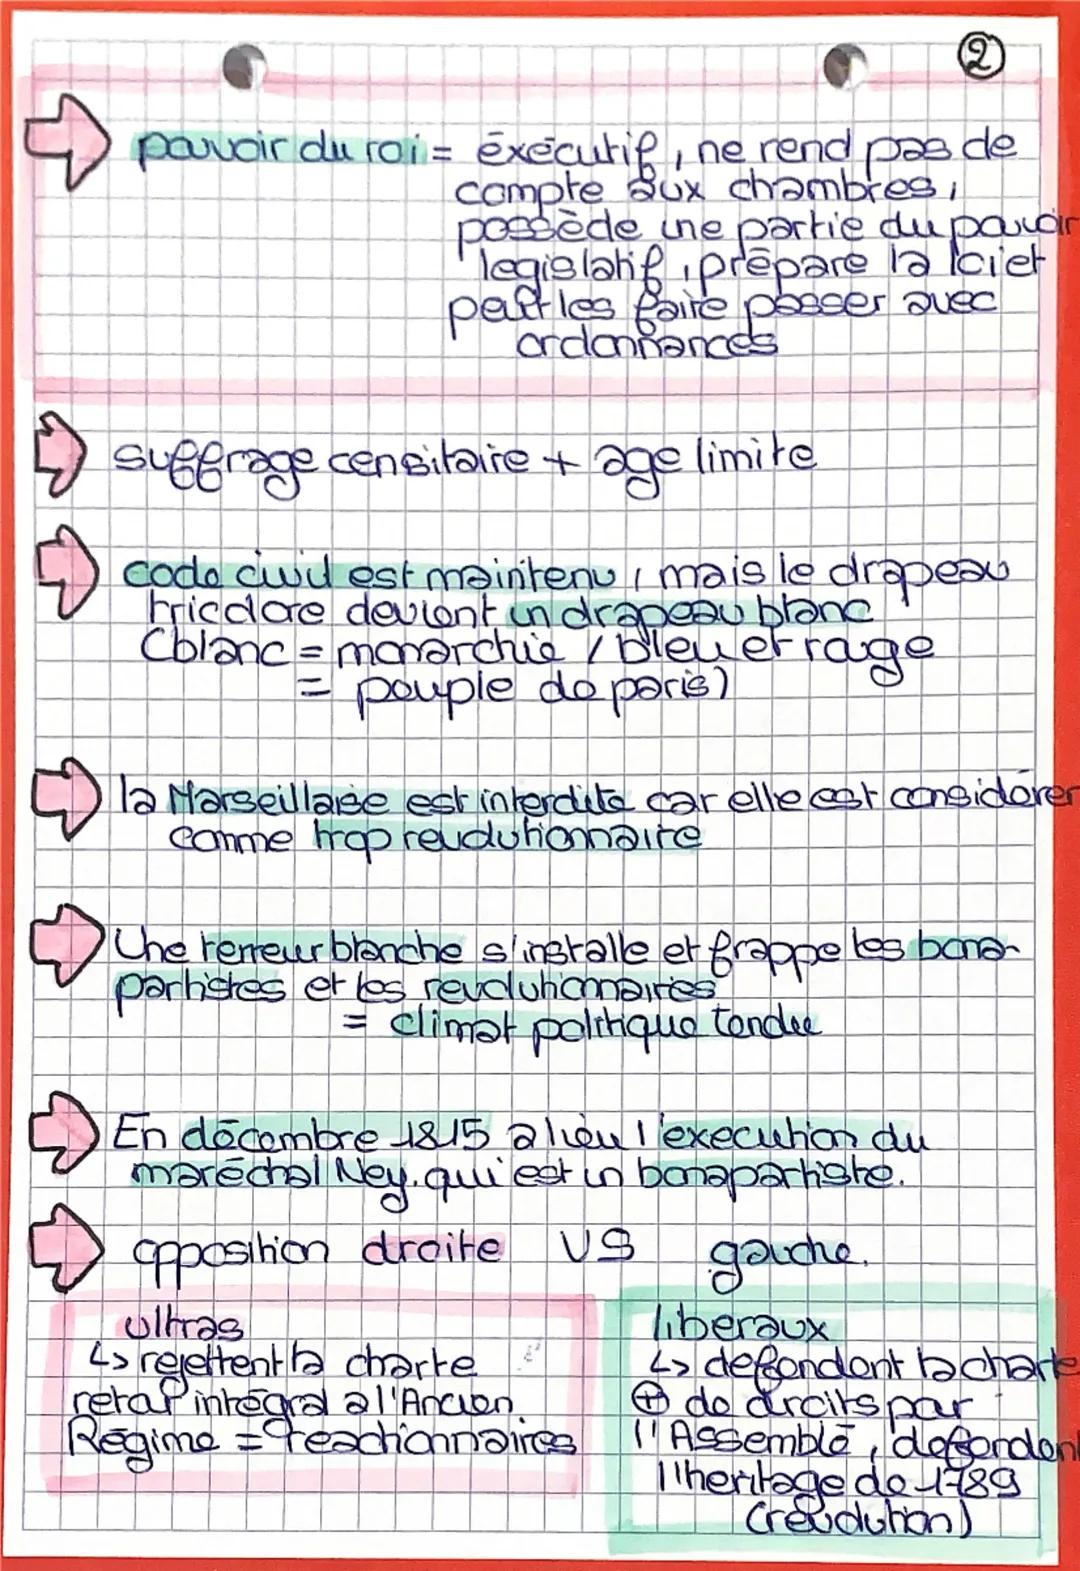 2
pouvoir du roi = éxécutif, ne rend pas de
compte aux chambres,
possède une partie du pouvoir
legislatif, prépare la loi et
peut les faire passer avec
ordonnances
suffrage censitaire + age limite
code civil est maintenu, mais le drapeau
tricolore devient un drapeau blanc
(blanc = monarchie / bleu et rouge
= peuple de paris)
la Marseillaise est interdite car elle est considérer
comme trop revolutionnaire
Une terreur blanche s'installe et frappe les bona-
partistes et les revolutionnaires
= climat politique tendue
En décembre 1815 a lieu l'execution du
maréchal Ney. qui est un bonapartiste.
opposition droite VS gauche.
ultras
↳ rejettent la charte
retour intégral a l'Ancien
Régime = reactionnaires
liberaux
↳ defendent la charte
⊕ de droits par
l'Assemblé, defendent
l'heritage de 1789
(revolution)